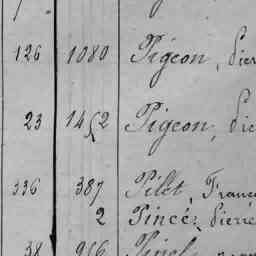 126 1080 Pigeon, Pier
23 1452 Pigeon, Pie
336 387 Pilet, Franç
2 Pincé, Pierre
38 966 Pinel